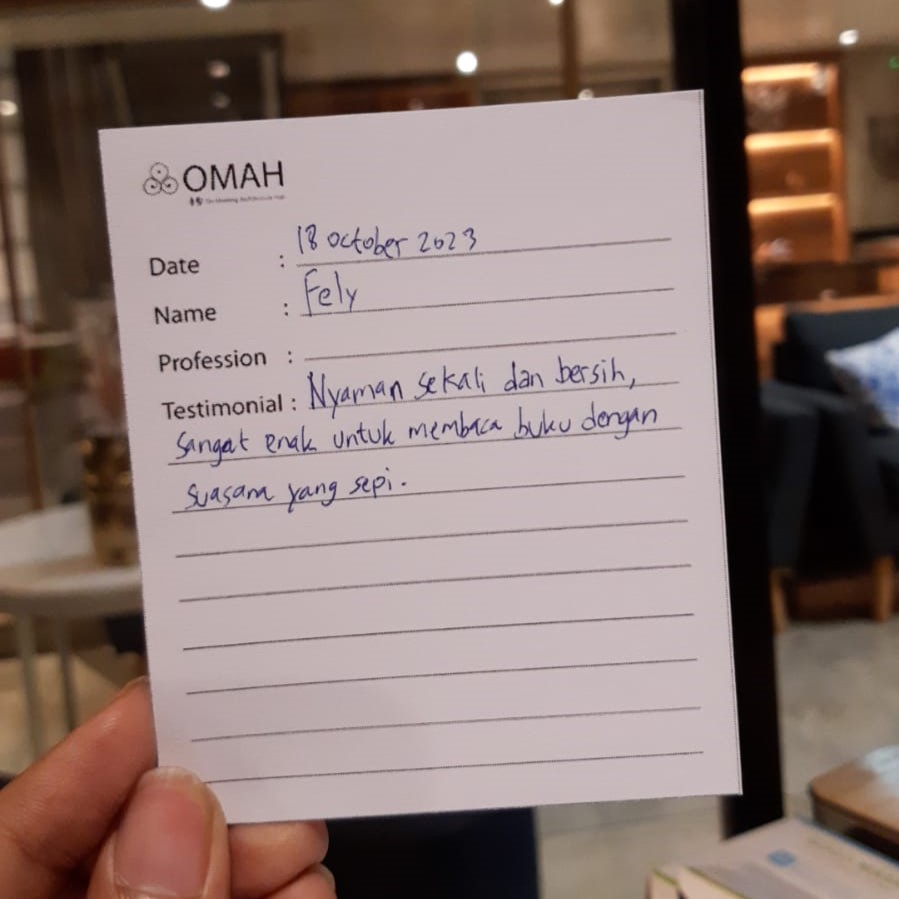 OMAH
Date : 18 october 2023
Name : Fely
Profession :
Testimonial : Nyaman sekali dan bersih,
sangat enak untuk membaca buku dengan
suasana yang sepi.